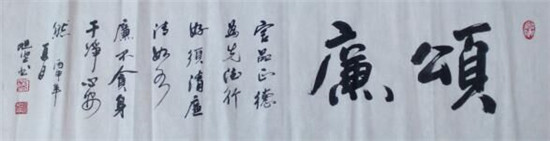 頌廉
官品正德
為先德行
好須清廉
清如水
廉不貪身
干净心安
然 丙申年
夏月
书